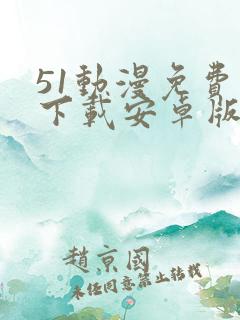 51動漫免費
下載安卓版
趙京國
未经同意禁止转载